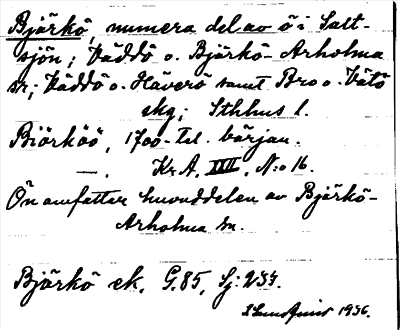 Björkö, numera del av ö i Salt-
sjön; Väddö o. Björkö-Arholma
sr; Väddö o. Häverö samt Bro o. Vätö
skg; Sthlms l.
Biörköö, 1700-tal. början.
—. Kr.A. XVII, N:o 16.
Ön omfattar huvuddelen av Björkö-
Arholma sn.
Björkö ek. G.85, Sj: 257.
1936.